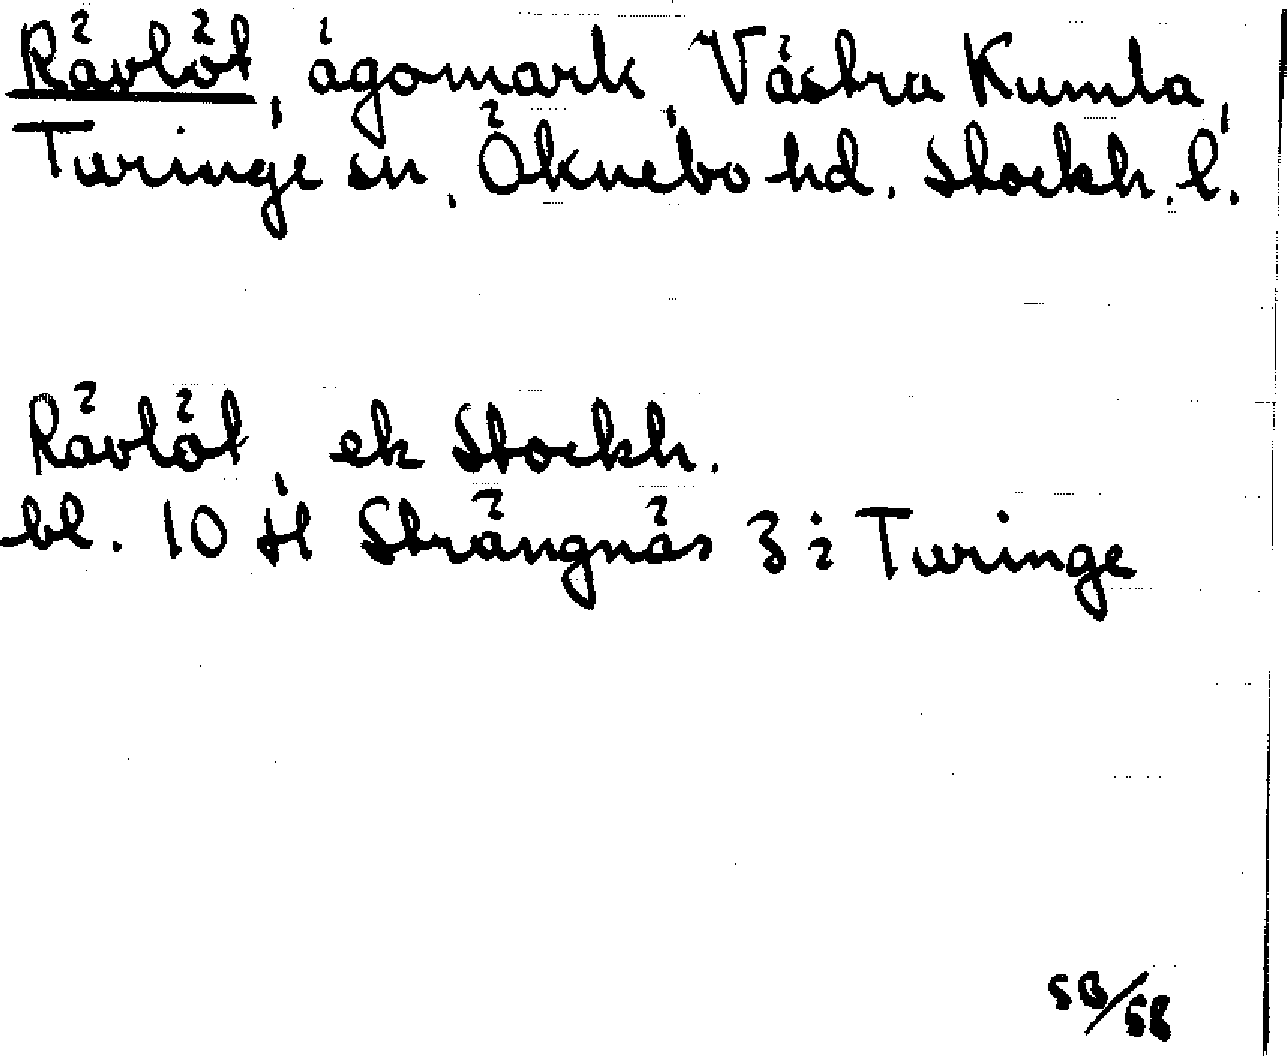 Rävlöt, ägomark, Västra Kumla,
Turinge sn, Öknebo hd. Stockh. l.
Rävlöt, ek Stockh.
bl. 10 H Strängnäs 3 i Turinge